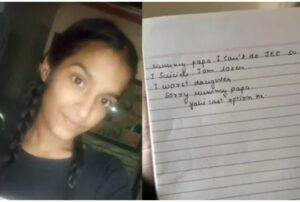 mummy papa I can't do JEE so
I suicide I am loser
I worst daughter
Sorry mummy papa
yahi last option he